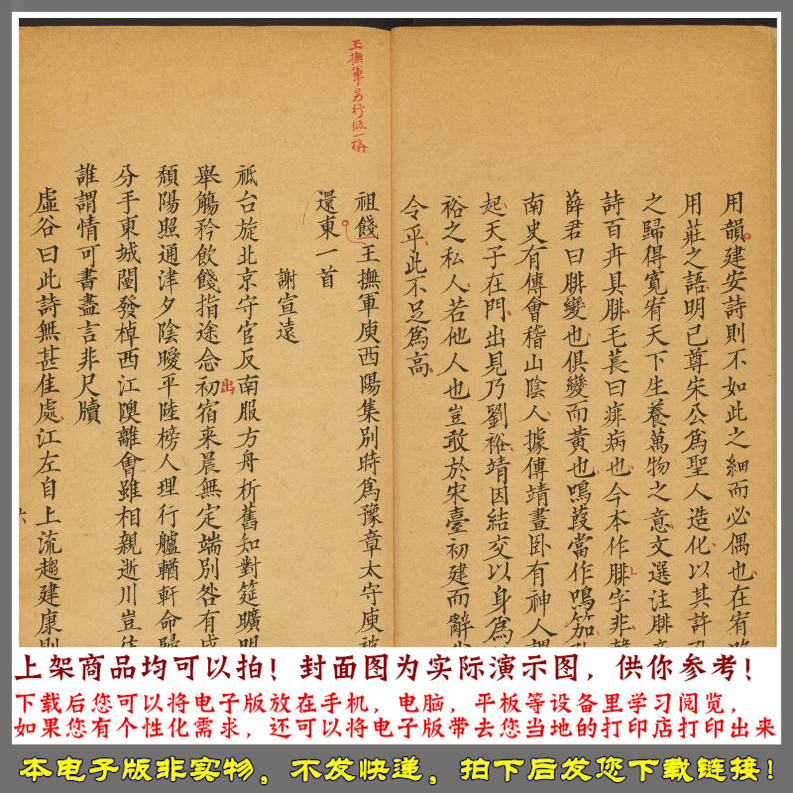 用韻建安詩則不如此之細而必偶也在宥
用莊之語明已尊宋公為聖人造化以其許
之歸得寬宥天下生養萬物之意文選注腓
詩百卉具腓毛萇曰痱病也今本作腓字非
薛君曰腓變也俱變而黃也鳴葭當作鳴笳
南史有傳會稽山陰人據傳靖晝卧有神人謂
起天子在門出見乃劉裕靖因結交以身為
裕之私人若他人也豈敢於宋臺初建而辭
令乎此不足為高
王撫軍另行低一格
祖餞王撫軍庾西陽集別時為豫章太守庾被
還東一首
謝宣遠
祗台旋北京守官反南服方舟析舊知對筵曠明
舉觴矜飲餞指途念出宿来晨無定端別晷有成
頹陽照通津夕陰曖平陸榜人理行艫輶軒命歸
分手東城闉發棹西江隩離會雖相親逝川豈往
誰謂情可書盡言非尺牘
虛谷曰此詩無甚佳處江左自上流趨建康則
六
上架商品均可以拍！封面图为实际演示图，供你参考！
下载后您可以将电子版放在手机，电脑，平板等设备里学习阅览，
如果您有个性化需求，还可以将电子版带去您当地的打印店打印出来
本电子版非实物，不发快递，拍下后发您下载链接！